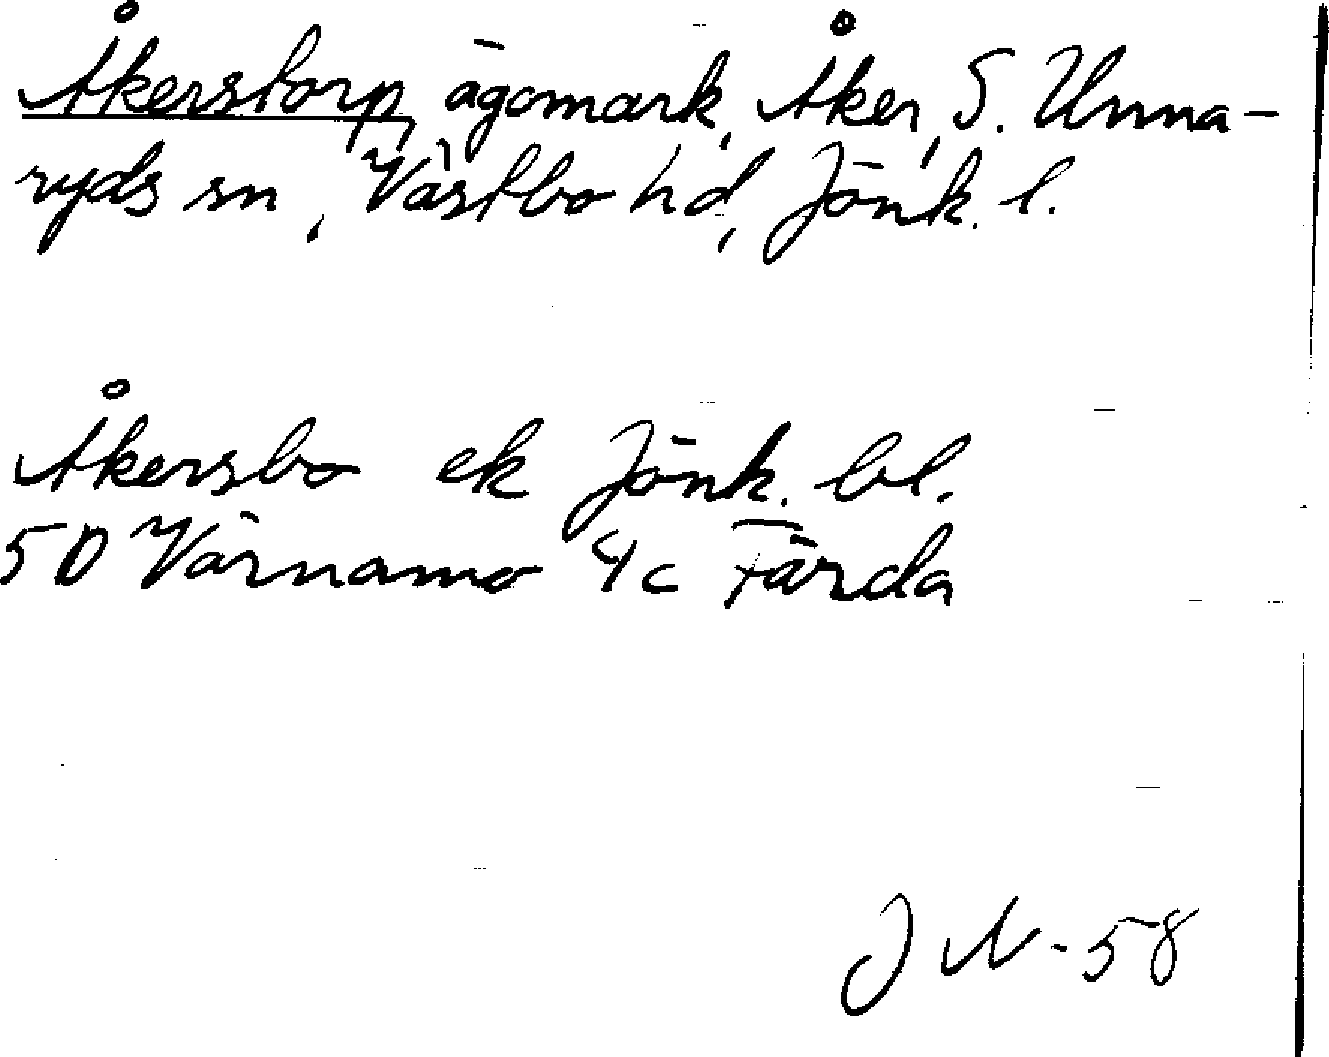 Åkerstorp, ägomark, Åker, S. Unna-
ryds sn, Västbo hd, Jönk. l.
Åkersbo ek Jönk. bl.
5D Värnamo 4c Färda
JN-58